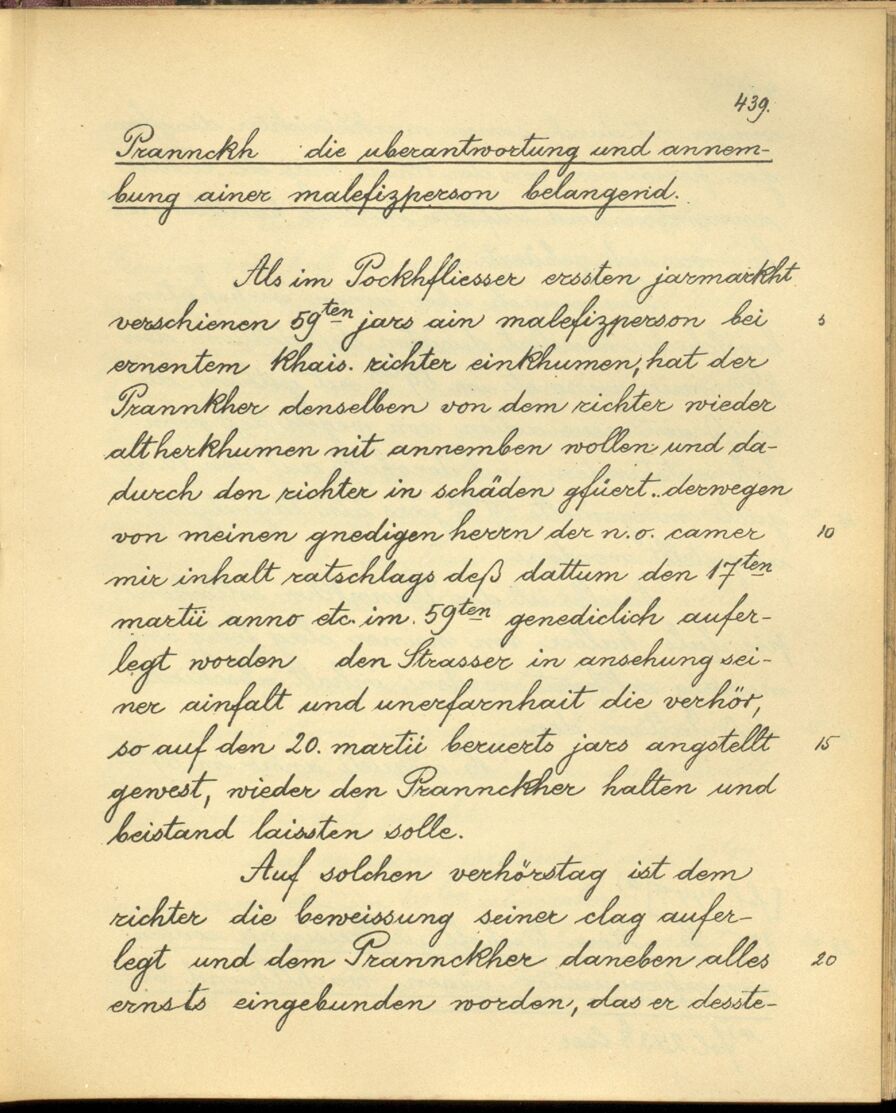 439.
Prannckh die uberantwortung und annem-
bung ainer malefizperson belangend.
Als im Pockhfliesser erssten jarmarkht
verschienen 59ten jars ain malefizperson bei 5
ernentem khais. richter einkhumen, hat der
Prannkher denselben von dem richter wieder
altherkhumen nit annemben wollen und da-
durch den richter in schäden gfüert.. derwegen
von meinen gnedigen herrn der n.o. camer 10
mir inhalt ratschlags deß dattum den 17ten
martii anno etc. im. 59ten genediclich aufer-
legt worden den Strasser in ansehung sei-
ner ainfalt und unerfarnhait die verhör,
so auf den 20. martii beruerts jars angstellt 15
gewest, wieder den Prannckher halten und
beistand laissten solle.
Auf solchen verhörstag ist dem
richter die beweissung seiner clag aufer-
legt und dem Prannckher daneben alles 20
ernsts eingebunden worden, das er desste-